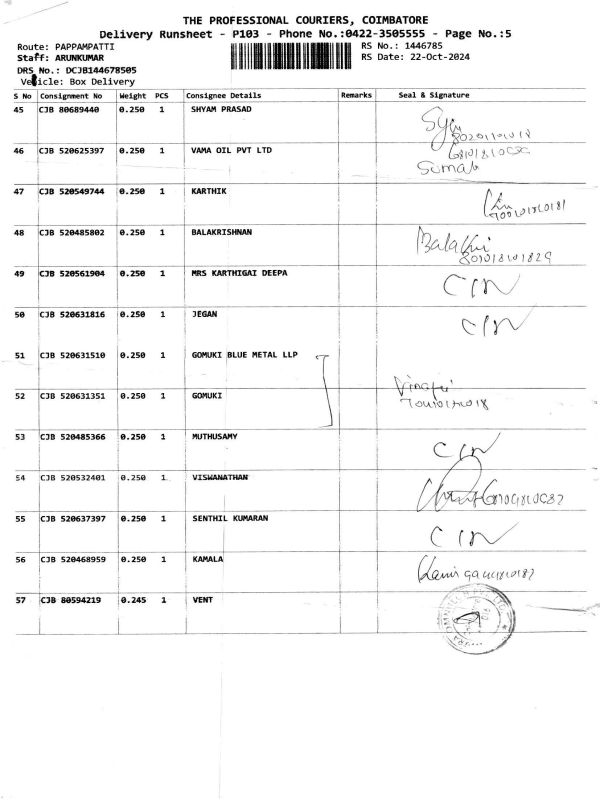 THE PROFESSIONAL COURIERS, COIMBATORE
Delivery Runsheet - P103 - Phone No.:0422-3505555 - Page No.:5
Route: PAPPAMPATTI RS No.: 1446785
Staff: ARUNKUMAR RS Date: 22-Oct-2024
DRS No.: DCJB144678505
Vehicle: Box Delivery
S No Consignment No Weight PCS Consignee Details Remarks Seal & Signature
45 CJB 80689440 0.250 1 SHYAM PRASAD
46 CJB 520625397 0.250 1 VAMA OIL PVT LTD
47 CJB 520549744 0.250 1 KARTHIK
48 CJB 520485802 0.250 1 BALAKRISHNAN
49 CJB 520561904 0.250 1 MRS KARTHIGAI DEEPA
50 CJB 520631816 0.250 1 JEGAN
51 CJB 520631510 0.250 1 GOMUKI BLUE METAL LLP
52 CJB 520631351 0.250 1 GOMUKI
53 CJB 520485366 0.250 1 MUTHUSAMY
54 CJB 520532401 0.250 1 VISWANATHAN
55 CJB 520637397 0.250 1 SENTHIL KUMARAN
56 CJB 520468959 0.250 1 KAMALA
57 CJB 80594219 0.245 1 VENT